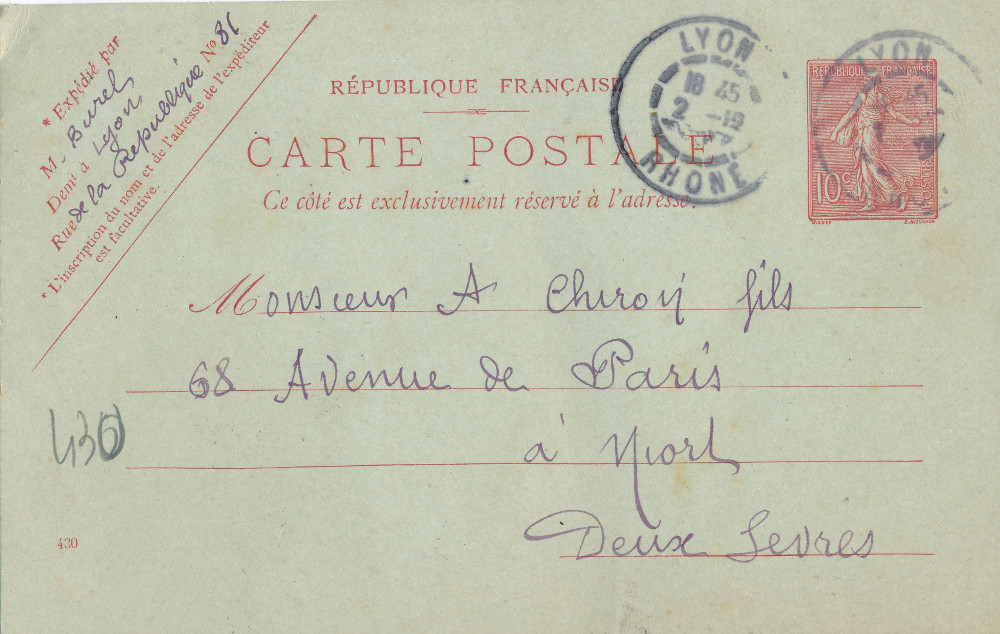 * Expédié par
M. Burel
Demt à Lyon
Rue de la Republique No 86
* L'inscription du nom et de l'adresse de l'expéditeur
est facultative.
RÉPUBLIQUE FRANÇAISE
CARTE POSTALE
Ce côté est exclusivement réservé à l'adresse.
LYON
18 45
2 -12
RHONE
LYON
REPUBLIQUE FRANÇAISE
10c
POSTES
Monsieur A Chiron fils
68 Avenue de Paris
à Niort
Deux Sevres
430
430